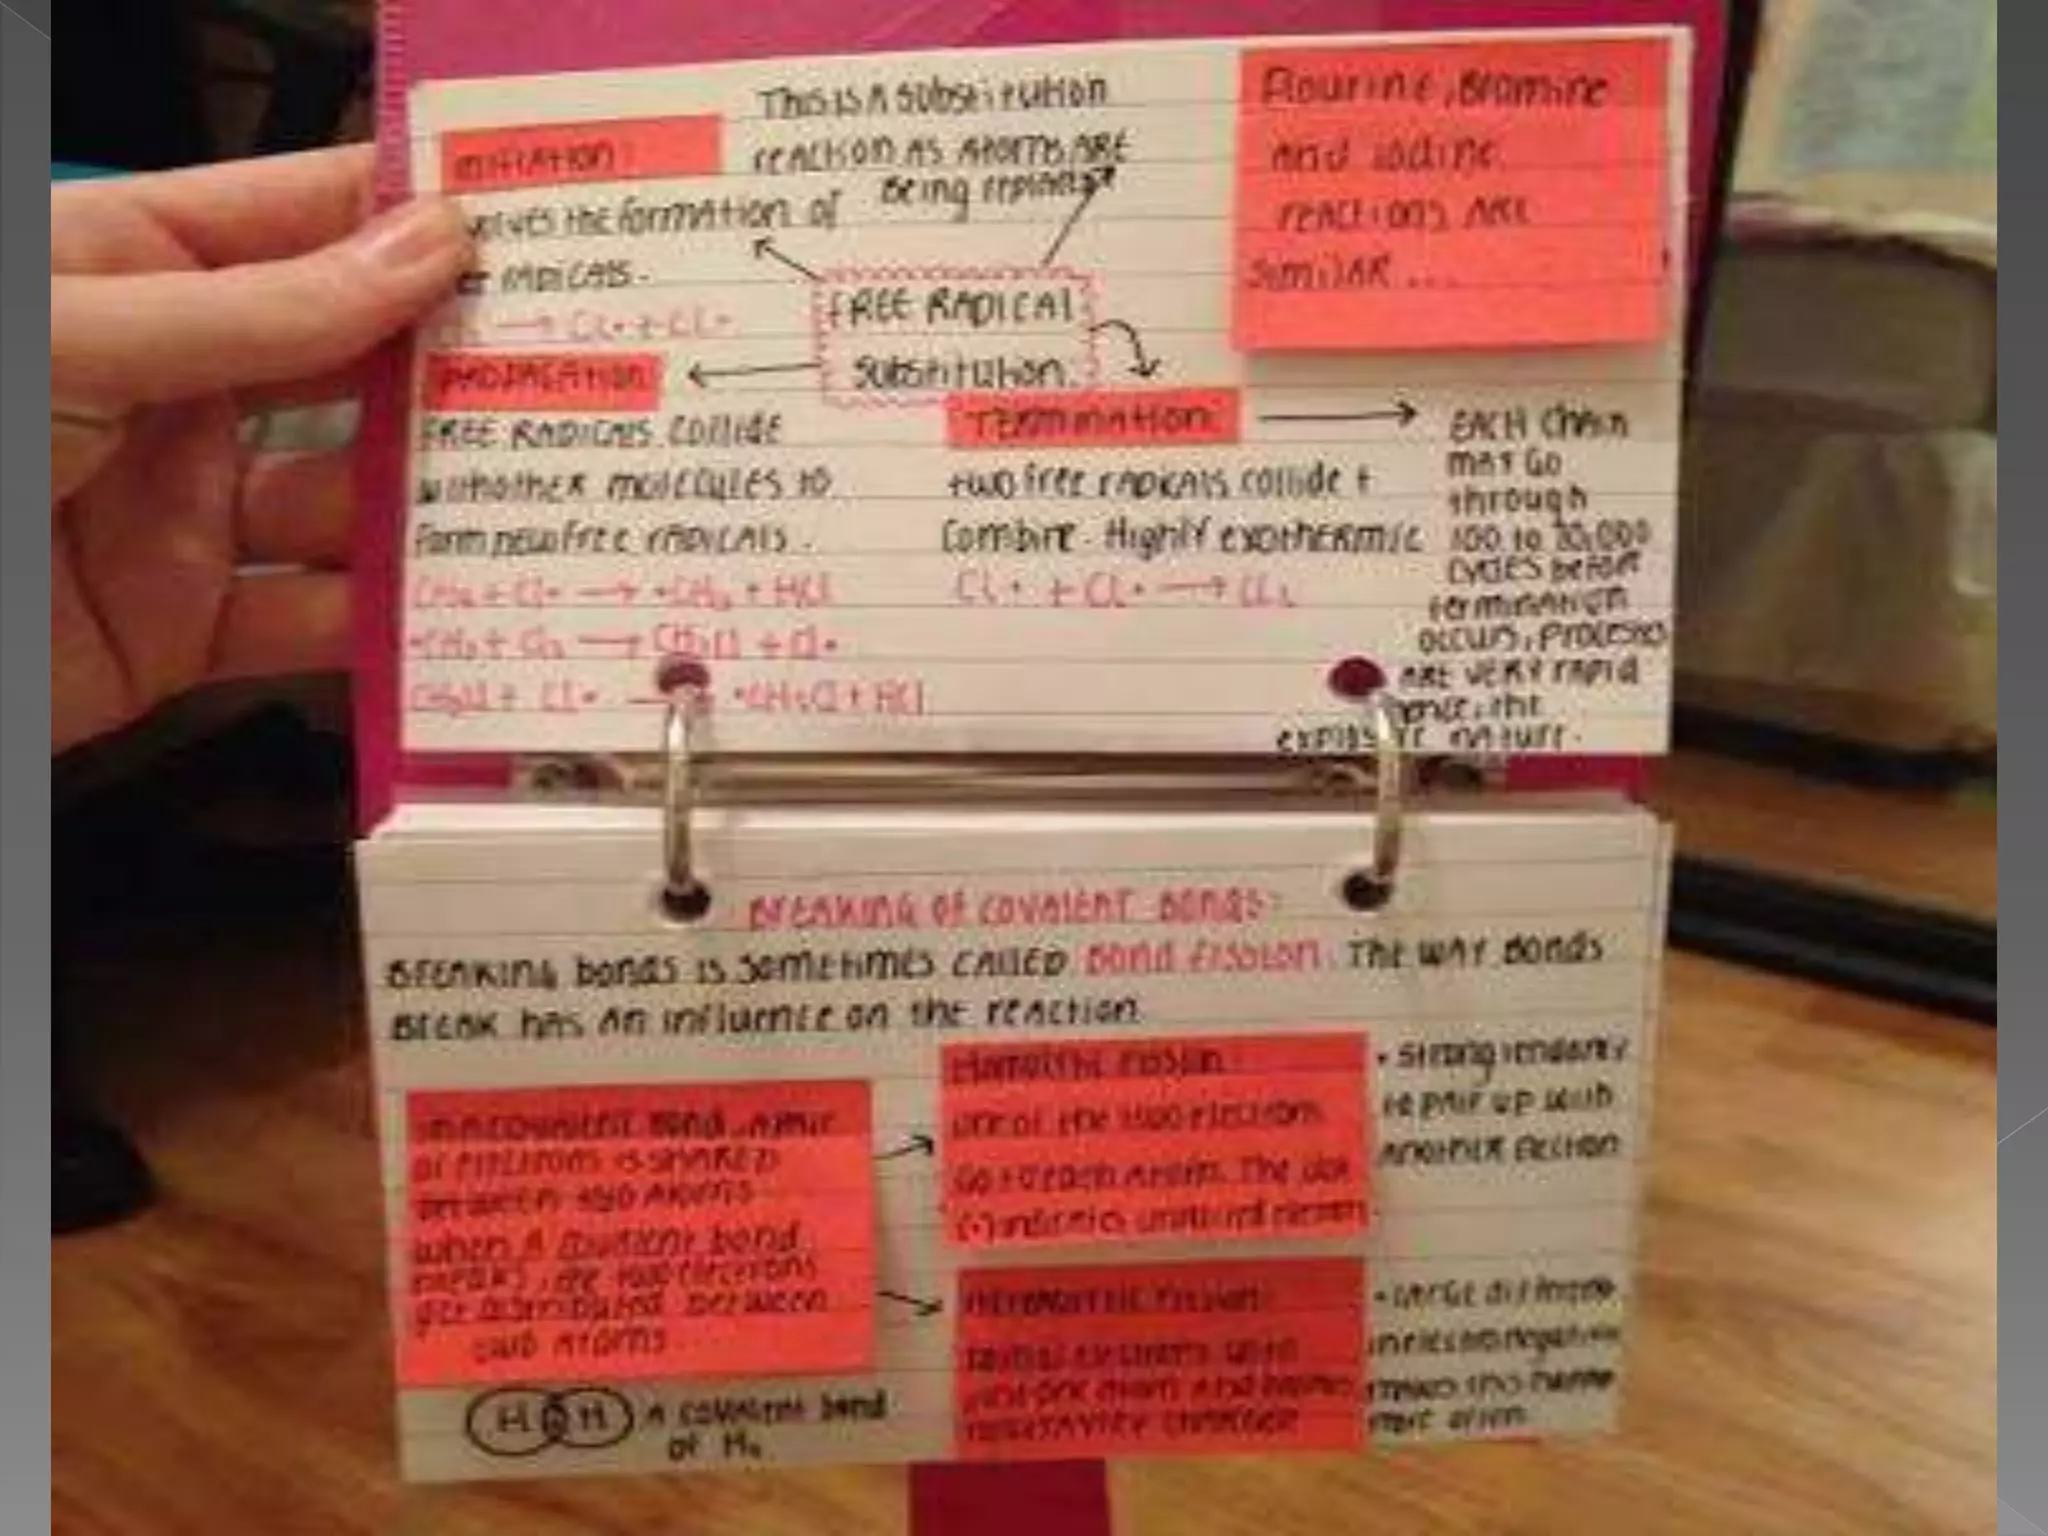 This is a substitution
reaction as atoms are
being replaced
Flourine, Bromine
and iodine
reactions are
similar ...
initiation:
volves the formation of
radicals.
→ Cl• + Cl•
FREE RADICAL
substitution.
PROPAGATION
FREE RADICALS collide
with other molecules to
form new free radicals.
CH₄ + Cl• → •CH₃ + HCl
•CH₃ + Cl₂ → CH₃Cl + Cl•
CH₃Cl + Cl• → •CH₂Cl + HCl
TERMINATION:
two free radicals collide +
combine. Highly exothermic
Cl• + Cl• → Cl₂
EACH chain
may go
through
100 to 10,000
cycles before
termination
occurs, processes
are very rapid
hence, the
explosive nature.
BREAKING OF COVALENT BONDS:
BREAKING bonds is sometimes called Bond fission. The way bonds
break has an influence on the reaction
In a covalent bond, a pair
of electrons is shared
between two atoms
when a covalent bond
breaks, the two electrons
get distributed between
two atoms.
H H A covalent bond
of H₂.
Homolytic fission:
one of the two electrons
go to each atom. The dot
(•) indicates unpaired electron
• Strong tendancy
to pair up with
another electron
Heterolytic fission:
• Large difference
in electronegativity
makes this happen
more often.